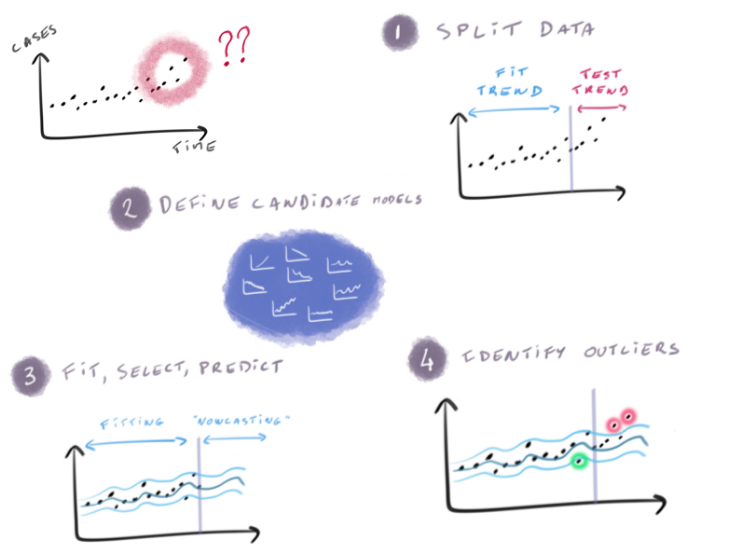 CASES
??
TIME
1 SPLIT DATA
FIT
TREND
TEST
TREND
2 DEFINE CANDIDATE MODELS
3 FIT, SELECT, PREDICT
FITTING
"NOWCASTING"
4 IDENTIFY OUTLIERS